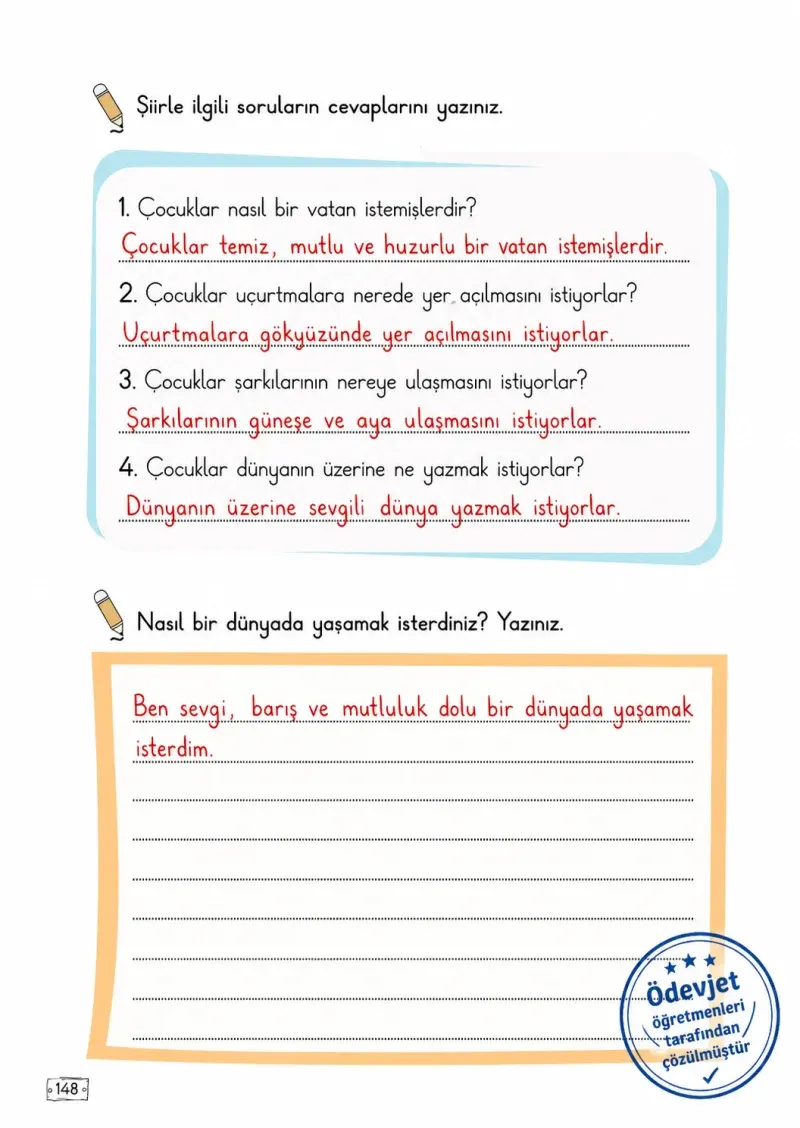 Şiirle ilgili soruların cevaplarını yazınız.
1. Çocuklar nasıl bir vatan istemişlerdir?
Çocuklar temiz, mutlu ve huzurlu bir vatan istemişlerdir.
2. Çocuklar uçurtmalara nerede yer açılmasını istiyorlar?
Uçurtmalara gökyüzünde yer açılmasını istiyorlar.
3. Çocuklar şarkılarının nereye ulaşmasını istiyorlar?
Şarkılarının güneşe ve aya ulaşmasını istiyorlar.
4. Çocuklar dünyanın üzerine ne yazmak istiyorlar?
Dünyanın üzerine sevgili dünya yazmak istiyorlar.
Nasıl bir dünyada yaşamak isterdiniz? Yazınız.
Ben sevgi, barış ve mutluluk dolu bir dünyada yaşamak
isterdim.
Ödevjet
öğretmenleri
tarafından
çözülmüştür
148